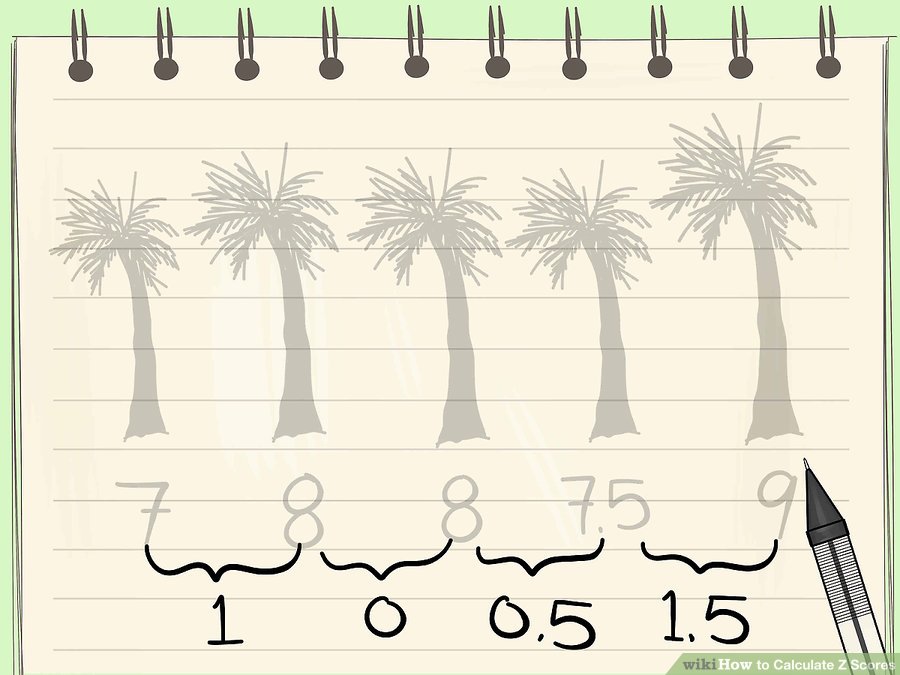 7 8 8 7.5 9
1 0 0.5 1.5
wikiHow to Calculate Z Scores